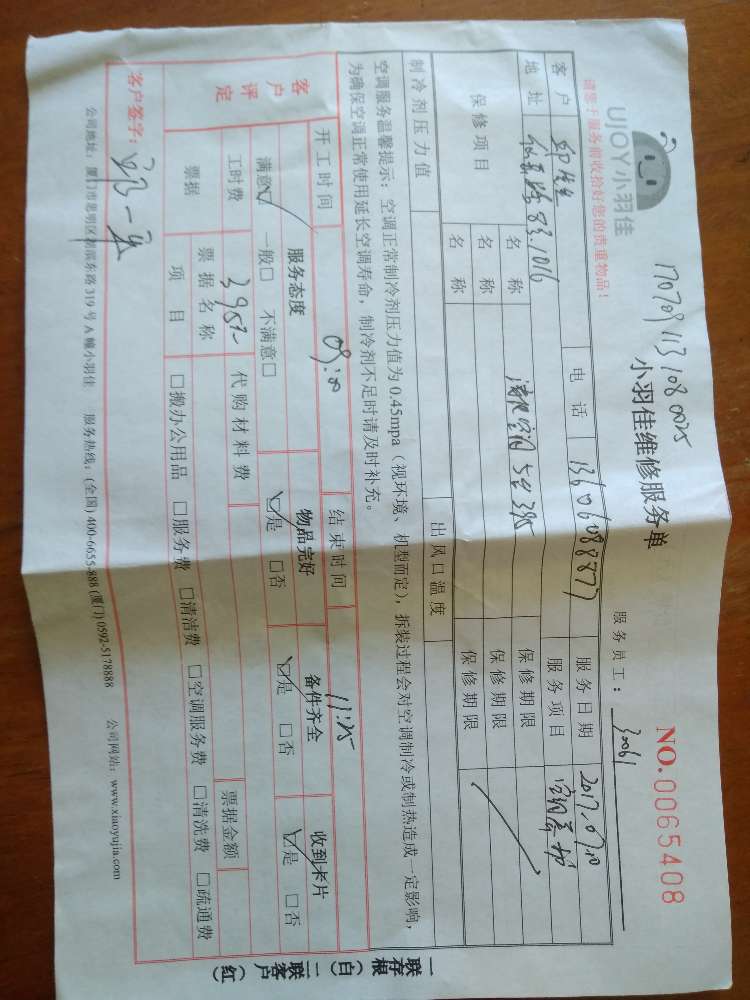 UJOY小羽佳
1707091131080025
小羽佳维修服务单
NO.0065408
请您于服务前收拾好您的贵重物品！
服务员工：
客户 电话 服务日期 2017.07.10
地址 83.1016 服务项目 空调养护
保修项目 名称 清洗空调5台 保修期限
名称 保修期限
名称 保修期限
制冷剂压力值 出风口温度
空调服务温馨提示：空调正常制冷剂压力值为0.45mpa（视环境、机型而定），拆装过程会对空调制冷或制热造成一定影响，
为确保空调正常使用延长空调寿命，制冷剂不足时请及时补充。
开工时间 09:00 结束时间 11:25
客户评定 服务态度 物品完好 备件齐全 收到卡片
满意☑ 一般□ 不满意□ ☑是 □否 ☑是 □否 ☑是 □否
工时费 395元 代购材料费
票据 票据名称 票据金额
项目 □搬办公用品 □服务费 □清洁费 □空调服务费 □清洗费 □疏通费
客户签字：
公司地址：厦门市思明区湖滨东路319号A幢小羽佳 服务热线：(全国) 400-6655-888 (厦门) 0592-5178888 公司网站：www.xiaoyujia.com
一联存根（白）二联客户（红）